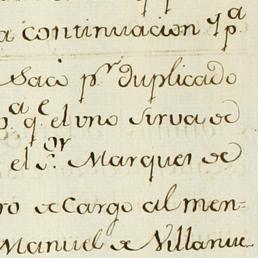 a continuacion y pa
Sacò pr. duplicado
pa. qe. el vno sirva de
el Sor. Marques de
ro de Cargo al men-
Manuel de Villanue-